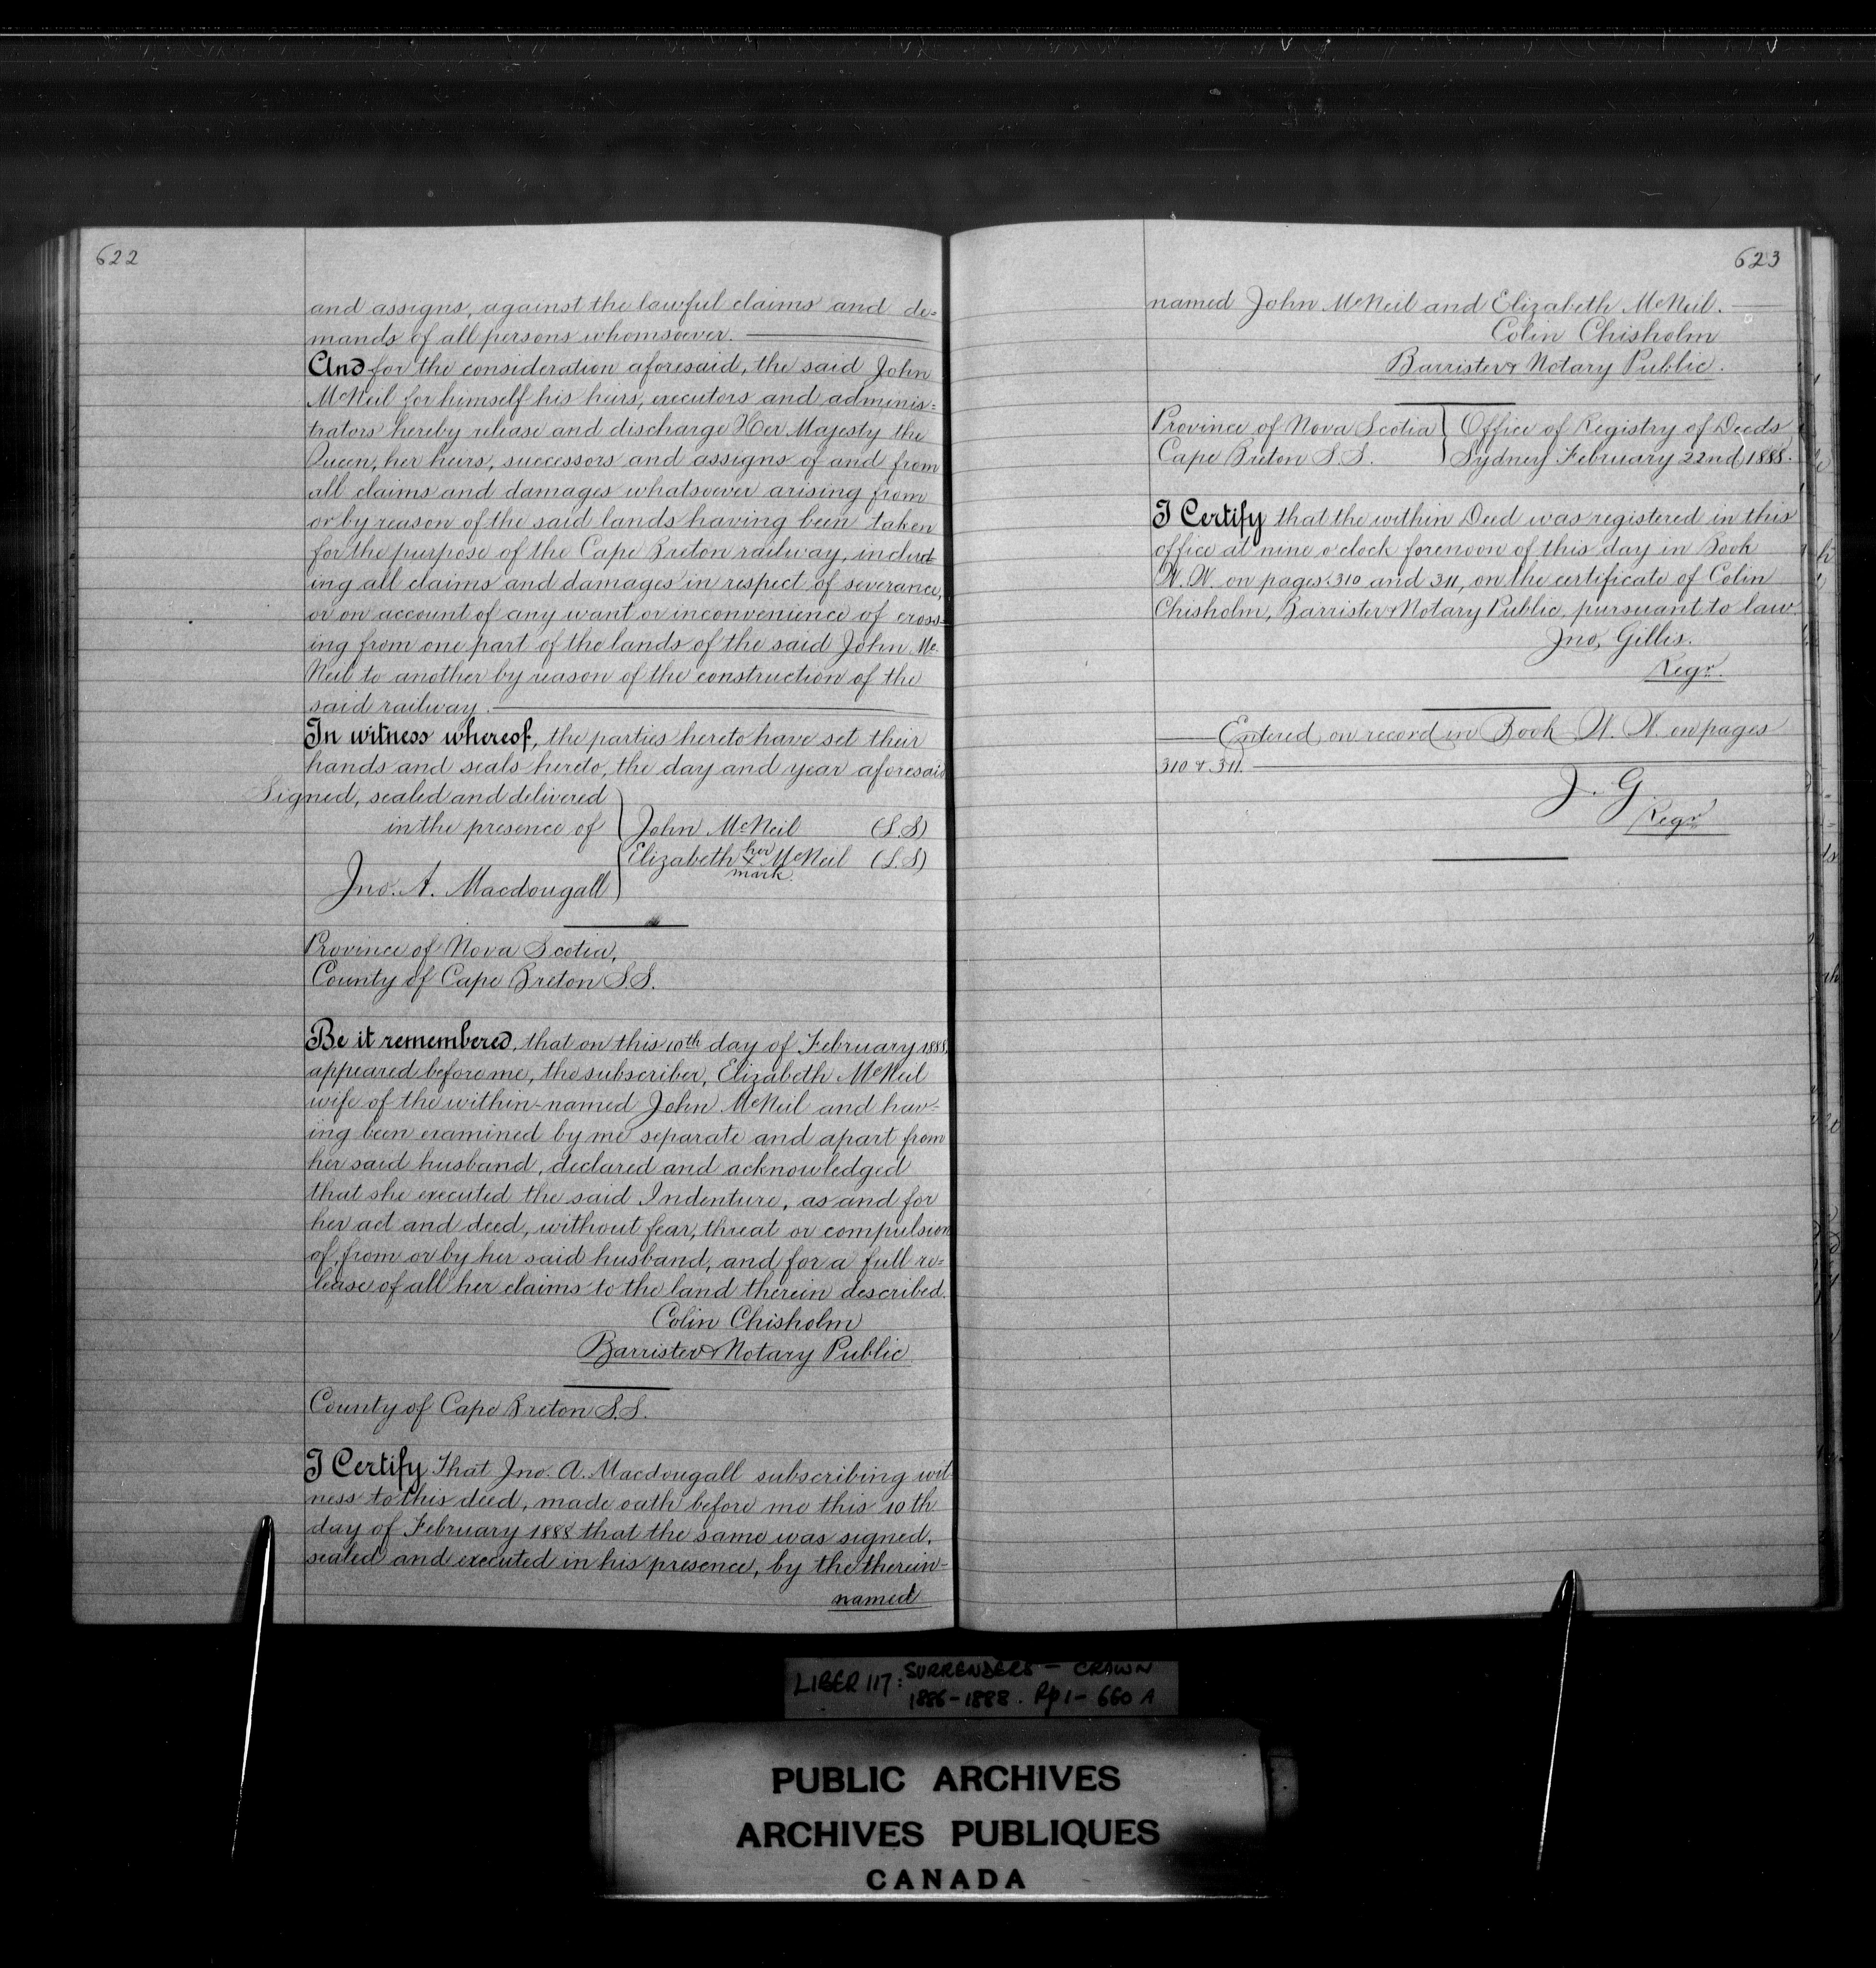 622
and assigns, against the lawful claims and de=
mands of all persons whomsoever.
And for the consideration aforesaid, the said John
McNeil for himself his heirs, executors and adminis=
trators hereby release and discharge Her Majesty the
Queen, her heirs, successors and assigns of and from
all claims and damages whatsoever arising from
or by reason of the said lands having been taken
for the purpose of the Cape Breton railway, includ-
ing all claims and damages in respect of severance,
or on account of any want or inconvenience of cross-
ing from one part of the lands of the said John Mc-
Neil to another by reason of the construction of the
said railway.
In witness whereof, the parties hereto have set their
hands and seals hereto, the day and year aforesaid
Signed, sealed and delivered
in the presence of
John McNeil (L.S)
Elizabeth her x mark McNeil (L.S)
Jno. A. Macdougall
Province of Nova Scotia,
County of Cape Breton S.S.
Be it remembered, that on this 10th day of February 1888,
appeared before me, the subscriber, Elizabeth McNeil
wife of the within-named John McNeil and hav-
ing been examined by me separate and apart from
her said husband, declared and acknowledged
that she executed the said Indenture, as and for
her act and deed, without fear, threat or compulsion
of, from or by her said husband, and for a full re=
lease of all her claims to the land therein described.
Colin Chisholm
Barrister & Notary Public
County of Cape Breton S.S.
I Certify That Jno. A. Macdougall subscribing wit-
ness to this deed, made oath before me this 10th
day of February 1888 that the same was signed,
sealed and executed in his presence, by the therein-
named
623
named John McNeil and Elizabeth McNeil.
Colin Chisholm
Barrister & Notary Public.
Province of Nova Scotia
Cape Breton S.S.
Office of Registry of Deeds
Sydney February 22nd, 1888.
I Certify that the within Deed was registered in this
office at nine o'clock forenoon of this day in Book
W. W. on pages 310 and 311, on the certificate of Colin
Chisholm, Barrister & Notary Public, pursuant to law.
Jno, Gillis.
Regr.
Entered on record in Book W. W. on pages
310 & 311.
J. G.
Regr
LIBER 117: SURRENDERS - CROWN
1886-1888. Pp 1-660 A
PUBLIC ARCHIVES
ARCHIVES PUBLIQUES
CANADA